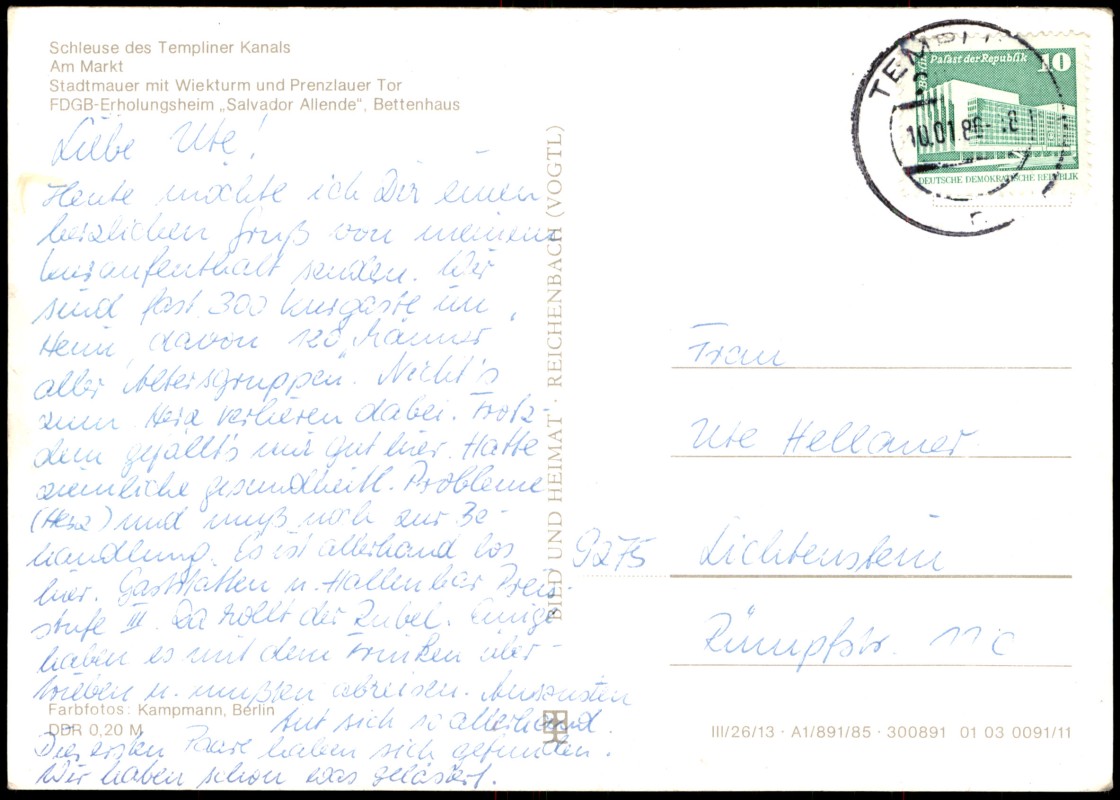 Schleuse des Templiner Kanals
Am Markt
Stadtmauer mit Wiekturm und Prenzlauer Tor
FDGB-Erholungsheim „Salvador Allende“, Bettenhaus
Liebe Ute!
Heute möchte ich Dir einen
herzlichen Gruß von meinem
Kuraufenthalt senden. Wir
sind fast 300 Kurgäste im
Heim, davon 120 Männer
aller Altersgruppen. Nicht's
zum Herz verlieren dabei. Trotz-
dem gefällt's mir gut hier. Hatte
ziemliche gesundheitl. Probleme
(Herz) und muß noch zur Be-
handlung. Es ist allerhand los
hier. Gaststätten u. Hallenbar Preis
stufe III. Da rollt der Rubel. Einige
haben es mit dem Trinken über-
trieben u. mußten abreisen. Ansonsten
tut sich so allerhand.
Die ersten Paare haben sich gefunden.
Wir haben schon was gelästert.
Farbfotos: Kampmann, Berlin
DDR 0,20 M
BILD UND HEIMAT · REICHENBACH (VOGTL)
TEMPLI
10.01.86-18
Berlin
Palast der Republik
10
DEUTSCHE DEMOKRATISCHE REPUBLIK
Frau
Ute Hellauer
9275 Lichtenstein
Rümpfstr. 11c
III/26/13 · A1/891/85 · 300891 01 03 0091/11